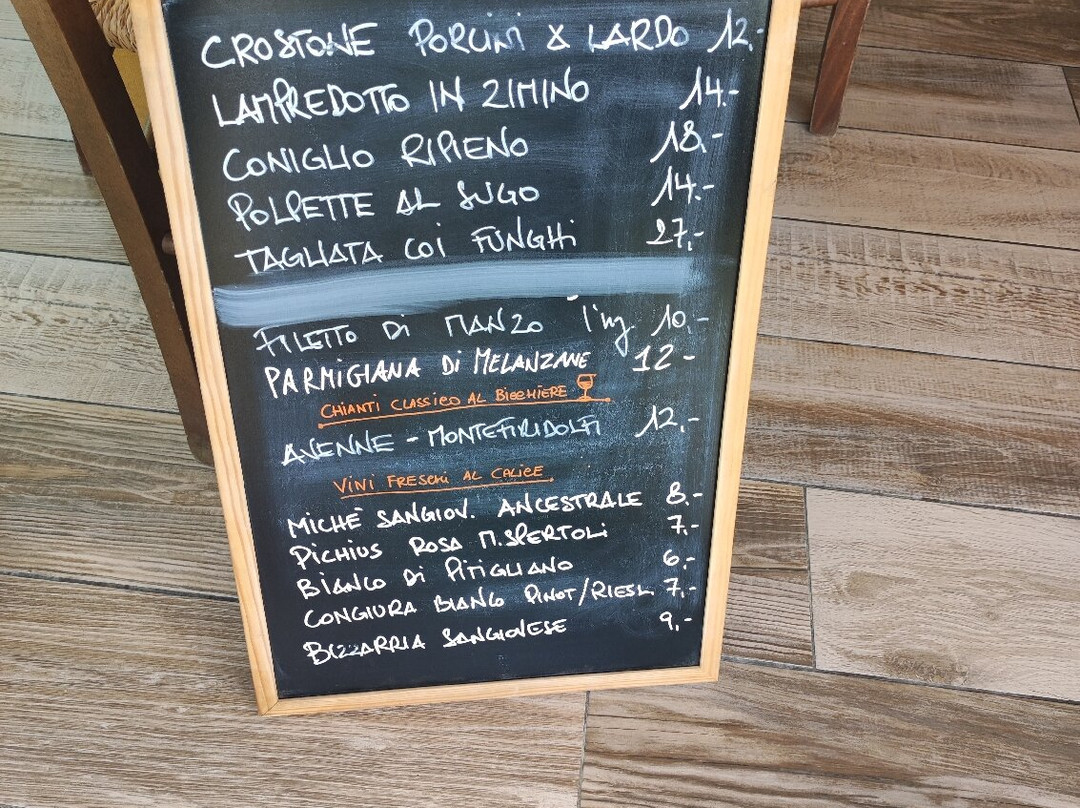 CROSTONE PORCINI & LARDO 12,-
LAMPREDOTTO IN ZIMINO 14.-
CONIGLIO RIPIENO 18.-
POLPETTE AL SUGO 14.-
TAGLIATA COI FUNGHI 27,-
FILETTO DI MANZO 10,-
PARMIGIANA DI MELANZANE 12-
CHIANTI CLASSICO AL BICCHIERE
AVENNE - MONTEFIRIDOLFI 12.-
VINI FRESCHI AL CALICE
MICHÈ SANGIOV. ANCESTRALE 8.-
PICHIUS ROSA M.SPERTOLI 7.-
BIANCO DI PITIGLIANO 6,-
CONGIURA BIANCO PINOT/RIESL. 7,-
BIZZARRIA SANGIOVESE 9,-